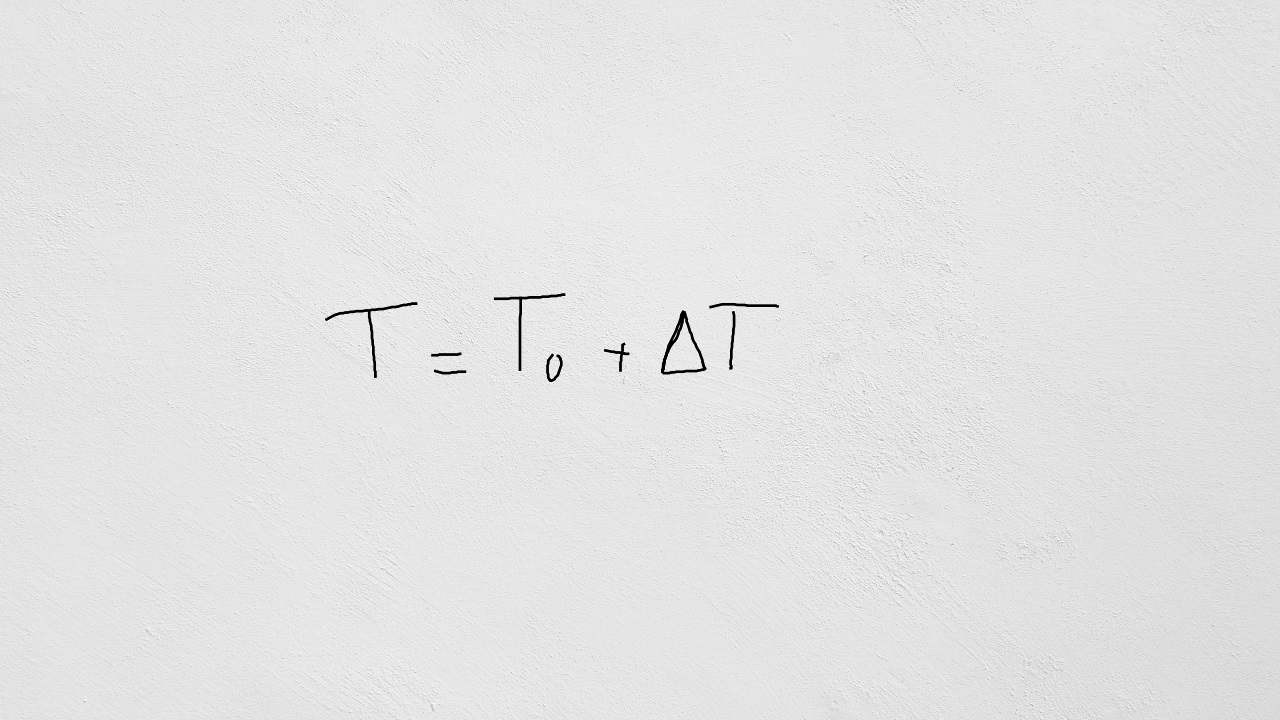 T = T₀ + ΔT